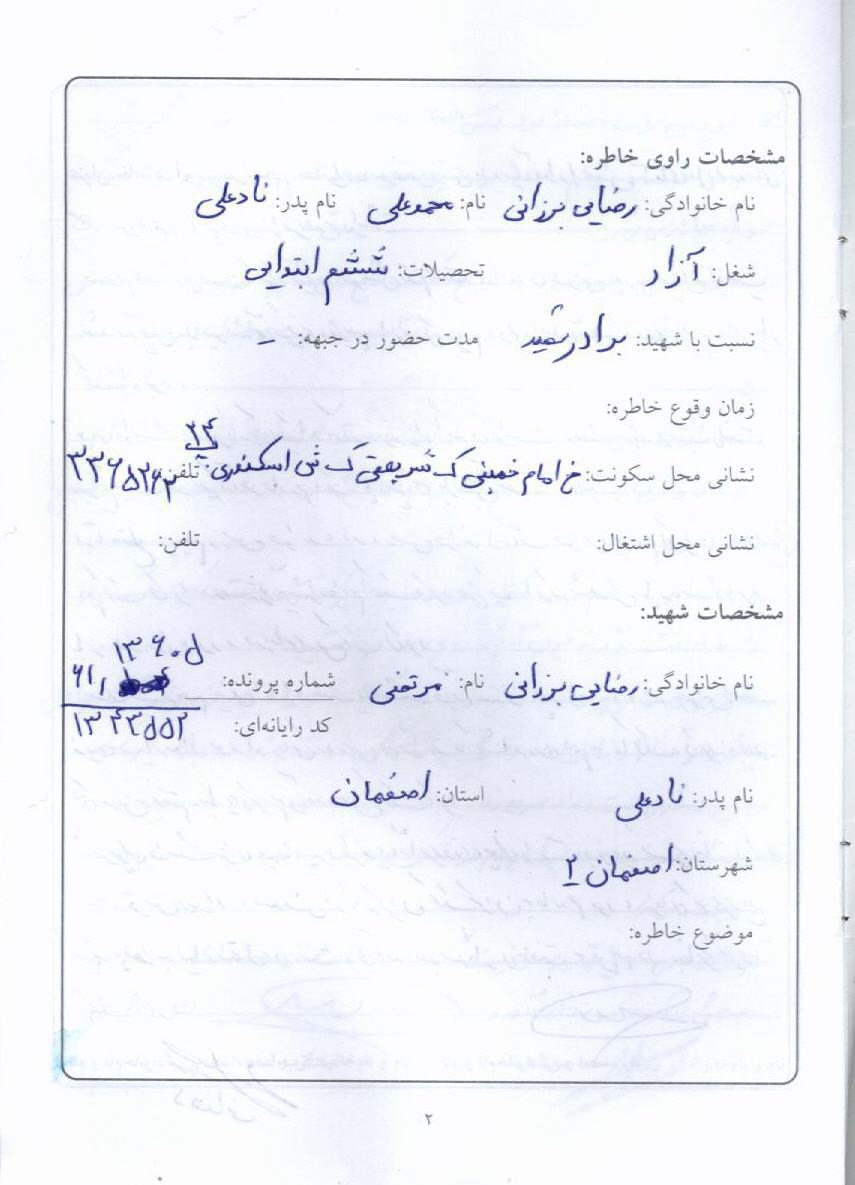 مشخصات راوی خاطره:
نام خانوادگی: رضایی برزانی نام: محمدعلی نام پدر: نادعلی
شغل: آزاد تحصیلات: ششم ابتدایی
نسبت با شهید: برادر شهید مدت حضور در جبهه: –
زمان وقوع خاطره:
نشانی محل سکونت: خ امام خمینی ک شریعتی ک ش اسکندری پ ۳۴ تلفن:
نشانی محل اشتغال: تلفن:
مشخصات شهید:
نام خانوادگی: رضایی برزانی نام: مرتضی شماره پرونده: ۱۳۶۰۵
کد رایانه‌ای: ۱۳۴۳۵۵۲
نام پدر: نادعلی استان: اصفهان
شهرستان: اصفهان ۲
موضوع خاطره:
۲